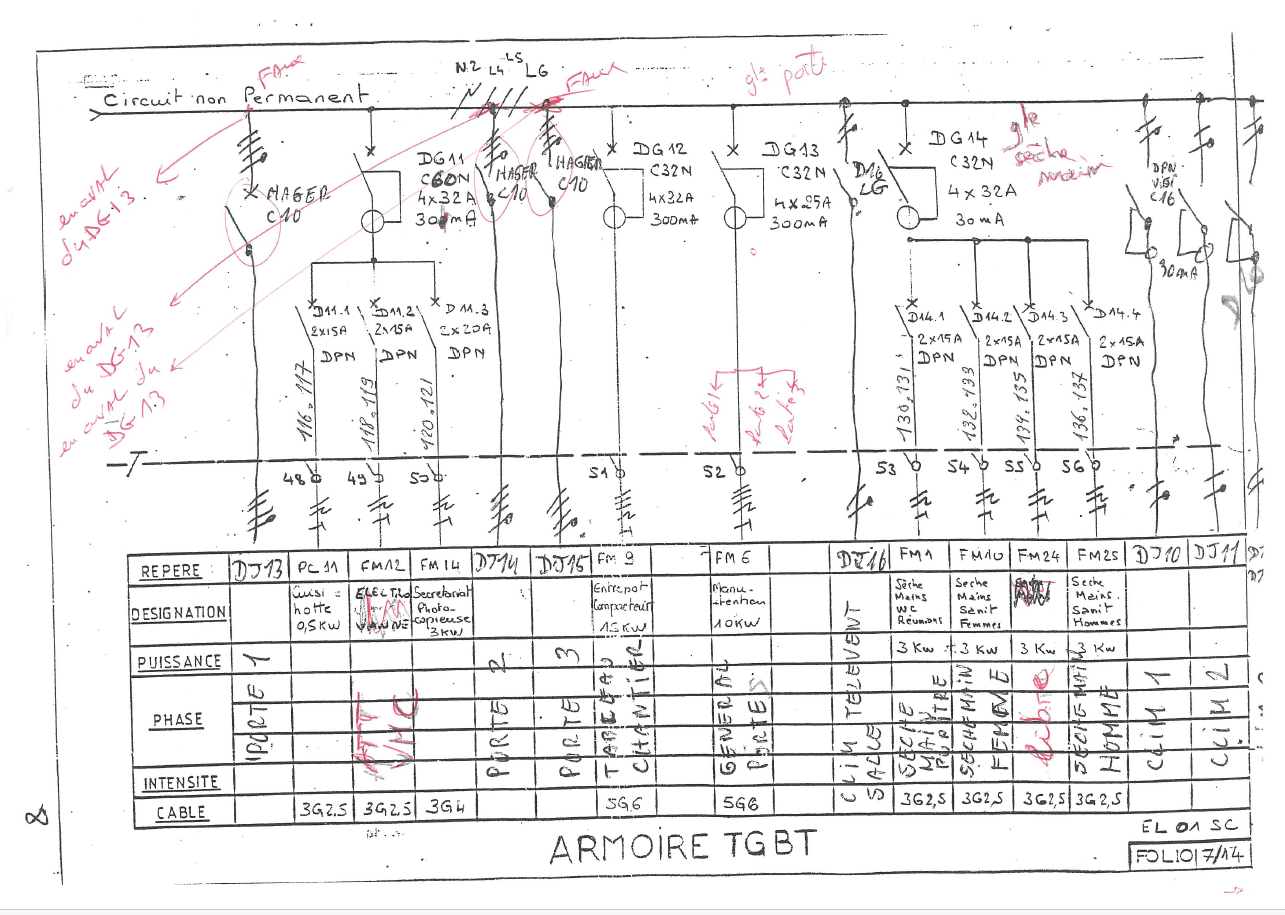 FAUX
N.2 L4 L5 L6
FAUX
gle porte
Circuit non Permanent
en aval
du DG13
HAGER
C10
DG11
C60N
4x32A
300mA
HAGER
C10
HAGER
C10
DG12
C32N
4x32A
300mA
DG13
C32N
4x25A
300mA
D16
LG
DG14
C32N
4x32A
30mA
gle
sèche
main
DPN
VIGI
C16
30mA
en aval
du DG13
en aval du
DG13
D11.1
2x15A
DPN
D11.2
2x15A
DPN
D11.3
2x20A
DPN
D14.1
2x15A
DPN
D14.2
2x15A
DPN
D14.3
2x15A
DPN
D14.4
2x15A
DPN
116.117
118.119
120.121
porte 1
porte 2
porte 3
130.131
132.133
134.135
136.137
T
48
49
50
51
52
53
54
55
56
REPERE : DJ13 PC11 FM12 FM14 DJ14 DJ15 FM9 FM6 DJ16 FM1 FM10 FM24 FM25 DJ10 DJ11
DESIGNATION
Cuisi =
hotte
0,5KW
ELECTRO
VANNE
Secretariat
Photo-
copieuse
3KW
Entrepot
Compacteur
15KW
Manu-
-tention
10KW
Sèche
Mains
WC
Réunions
Seche
Mains
Sanit
Femmes
Seche
Mains.
Sanit
Hommes
PUISSANCE 3 Kw 3 Kw 3 Kw 3 Kw
PHASE
PORTE 1
ATT
VMC
PORTE 2
PORTE 3
TABLEAU
CHANTIER
GENERAL
PORTES
CLIM TELEVENT
SALLE
SECHE
MAIN
SECHE MAIN
FEMME
libre
SECHE MAIN
HOMME
CLIM 1
CLIM 2
INTENSITE
CABLE 3G2,5 3G2,5 3G4 5G6 5G6 3G2,5 3G2,5 3G2,5 3G2,5
8
ARMOIRE TGBT
EL 01 SC
FOLIO 7/14